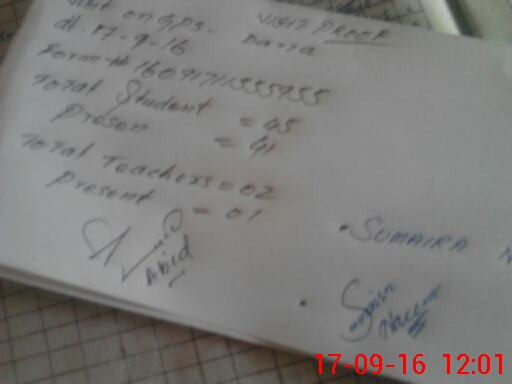 VISIT PROOF
Visit on GPS. Darra
dt. 17-9-16
Form # 16091711555955
Total Student = 45
Presen = 41
Total Teachers = 02
Present = 01
Abid
• SUMAIRA N
17-09-16 12:01